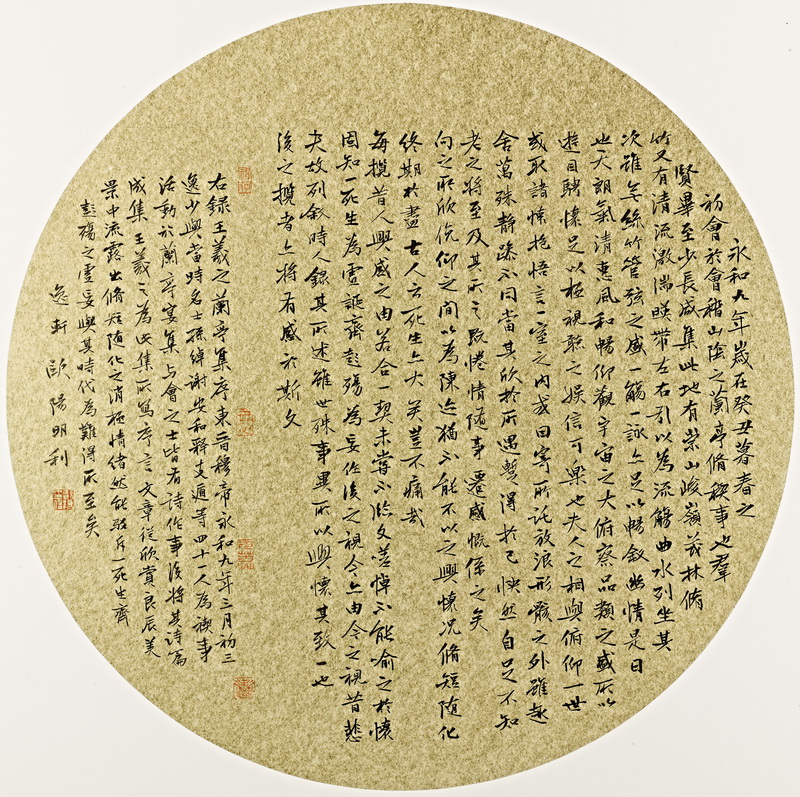 永和九年歲在癸丑暮春之
初會於會稽山陰之蘭亭脩禊事也羣
賢畢至少長咸集此地有崇山峻嶺茂林脩
竹又有清流激湍暎帶左右引以為流觴曲水列坐其
次雖無絲竹管弦之盛一觴一詠亦足以暢敘幽情是日
也天朗氣清惠風和暢仰觀宇宙之大俯察品類之盛所以
遊目騁懷足以極視聽之娛信可樂也夫人之相與俯仰一世
或取諸懷抱悟言一室之內或因寄所託放浪形骸之外雖趣
舍萬殊靜躁不同當其欣於所遇暫得於己怏然自足不知
老之將至及其所之既惓情隨事遷感慨係之矣
向之所欣俛仰之間以為陳迹猶不能不以之興懷況脩短隨化
終期於盡古人云死生亦大矣豈不痛哉
每攬昔人興感之由若合一契未嘗不臨文嗟悼不能喻之於懷
固知一死生為虛誕齊彭殤為妄作後之視今亦由今之視昔悲
夫故列敘時人錄其所述雖世殊事異所以興懷其致一也
後之攬者亦將有感於斯文
右錄王羲之蘭亭集序東晉穆帝永和九年三月初三
逸少與當時名士孫綽謝安和釋支遁等四十一人為禊事
活動於蘭亭宴集與會之士皆有詩作事後將其詩篇
成集王羲之為此集所寫序言文章從欣賞良辰美
景中流露出脩短隨化之消極情緒然能駁斥一死生齊
彭殤之虛妄與其時代為難得所至矣
逸軒歐陽明利